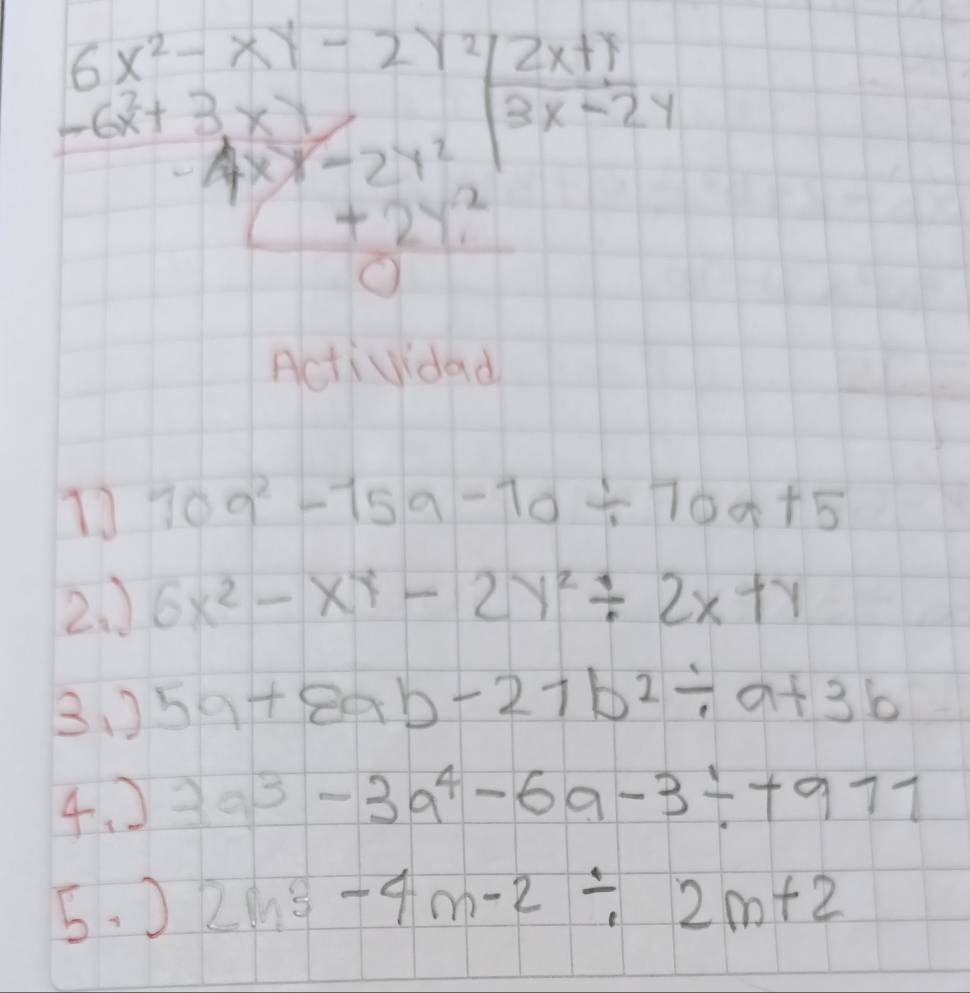 6x² - xy - 2y² | 2x+y
-6x² + 3xy | 3x-2y
-4xy - 2y²
+ 2y²
0
Actividad
1) 10a² - 15a - 10 ÷ 10a + 5
2.) 6x² - xy - 2y² ÷ 2x + y
3.) 5a + 8ab - 21b² ÷ a + 3b
4.) 3a³ - 3a⁴ - 6a - 3 ÷ + a 1 1
5.) 2m³ - 4m - 2 ÷ 2m + 2